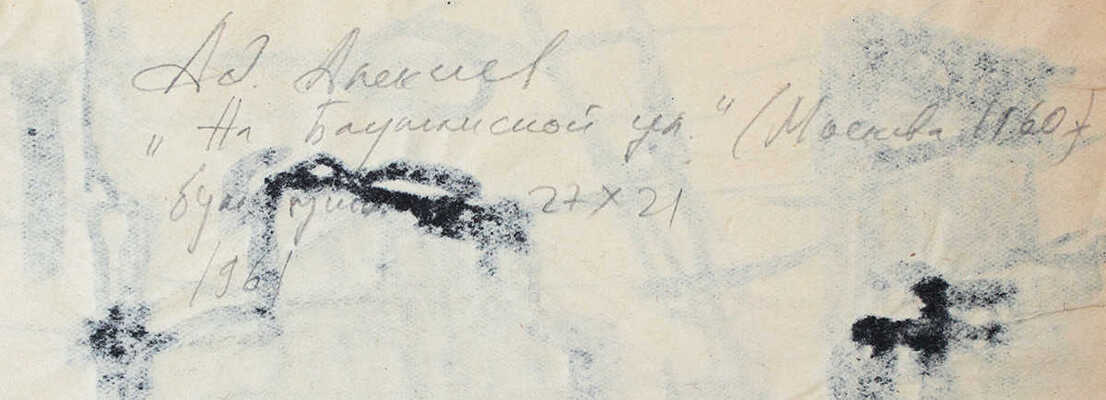 Ад. Алексеев
"На Бауманской ул." (Москва 1960г)
бум. 27 x 21
1961